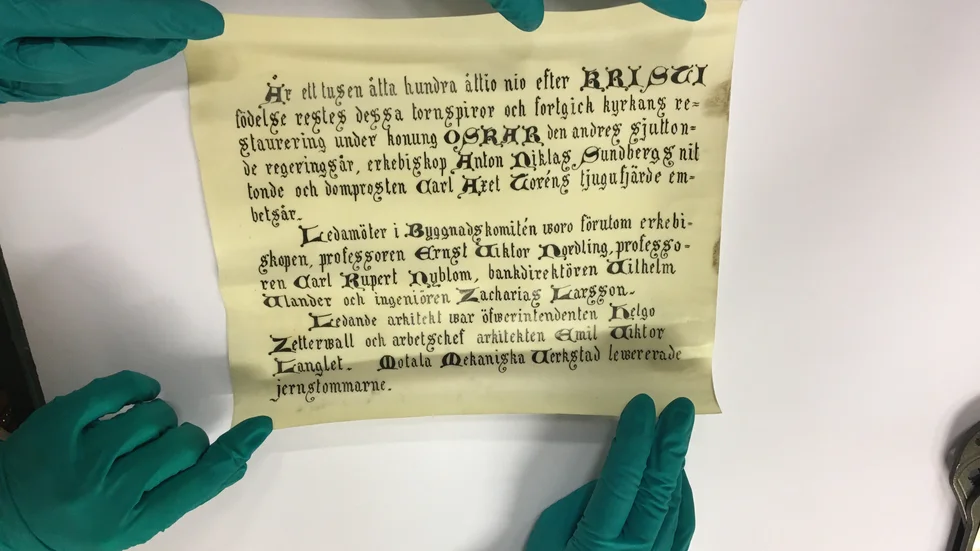 År ett tusen åtta hundra åttio nio efter KRISTI
födelse restes dessa tornspiror och fortgick kyrkans re-
staurering under konung OSKAR den andres sjutton-
de regeringsår, erkebiskop Anton Niklas Sundbergs nit
tonde och domprosten Carl Axel Toréns tjugufjärde em-
betsår.
Ledamöter i Byggnadskomitén woro förutom erkebi-
skopen, professoren Ernst Viktor Nordling, professo-
ren Carl Rupert Nyblom, bankdirektören Wilhelm
Ulander och ingeniören Zacharias Larsson.
Ledande arkitekt war öfwerintendenten Helgo
Zetterwall och arbetschef arkitekten Emil Viktor
Langlet. Motala Mekaniska Verkstad lewererade
jernstommarne.